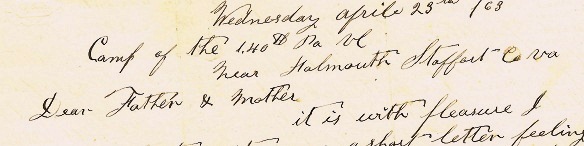 Wednesday aprile 23th /63
Camp of the 140th Pa Vl
Near Falmouth Staffort Co va
Dear Father & Mother
it is with pleasure I
a short letter feeling